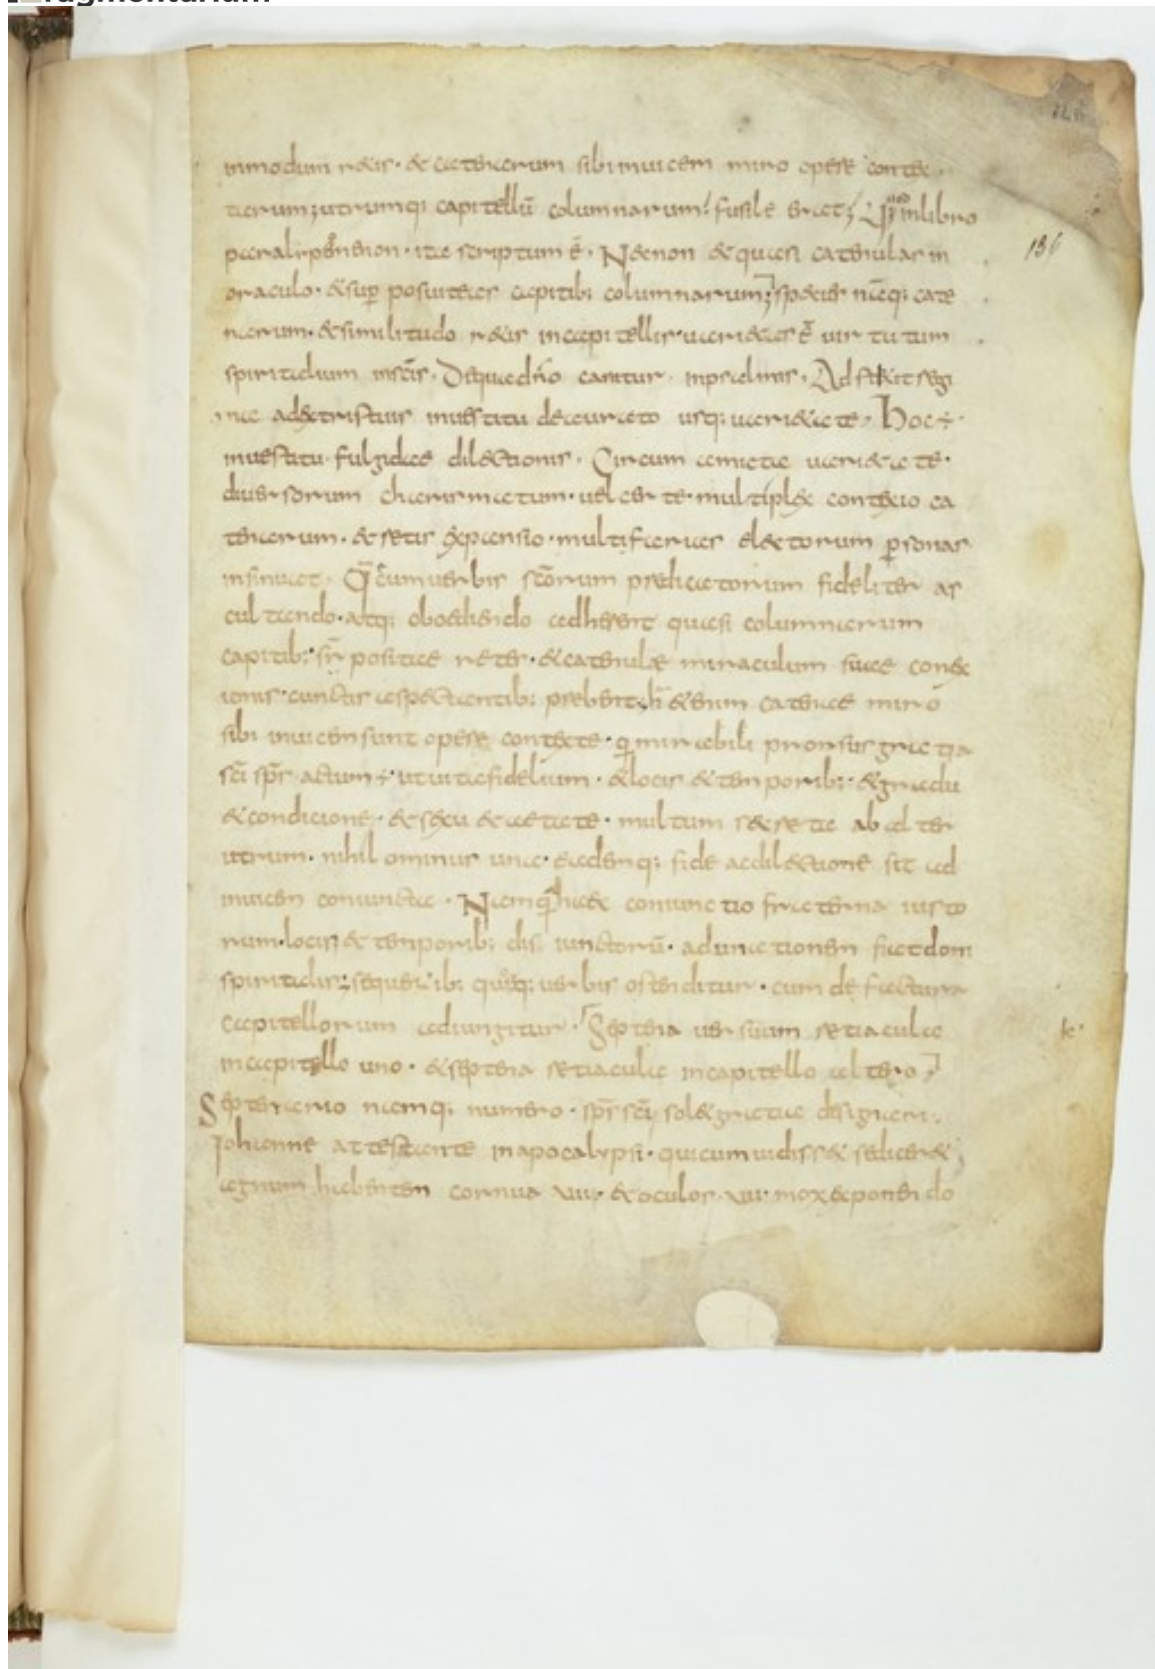 inmodum r&is · & catenarum sibi inuicem miro opere contex
tarum; utrumq; capitellū columnarum fusile erat; inlibro
paralipomenon · ita scriptum ē · Necnon & quasi catenulas in
oraculo · & sup posuit eas capitib; columnarum; species nāq; cate
narum · & similitudo r&is incapitellis · uari&as ē uirtutum
spiritalium inscīs · Dequa dn̄o canitur inpsalmis · Adstitit regi
na adextris tuis inuestitu deaurato usq; uari&ate · hoc ÷ ·
inuestitu fulgidae dilectionis · Circum amicta uari&ate ·
diuersorum charismatum · uel certe multiplex contexio ca
tenarum · & retis expansio · multifarias electorum psonas
insinuat · Q cum uerbis scōrum predicatorum fideliter as
cultando · atq; oboediendo adherent quasi columnarum
capitib; sr̄ positae rete · & catenulae miraculum suae conex
ionis · cunctis aspectantib; prebent · h̄ & enim catenae miro
sibi inuicem sunt opere contexte · q mirabili prorsus gratia
scī sps̄ · actum ÷ ut uita fidelium · & locis & temporib; · & gradu
& condicione · & sexu & aetate · multum s& reta ab alter
utrum · nihil ominus una · eademq; fide ac dilectione sit ad
inuicem coniuncta · Namq haec coniunctio fraterna iusto
rum · locis & temporib; disiunctorū · adunationem fiat doni
spiritalis; sequentib; quoq; uerbis ostenditur · cum de factura
capitellorum adiungitur · Septena uersuum retiacula
incapitello uno · & septena retiacula incapitello altero
k ·
Septenario namq; numero · sps̄ scī sol& gratia designari
Iohanne attestante inapocalypsi · qui cum uidisse se dicer&
agnum habentem cornua uii · & oculos uii · mox exponendo
136